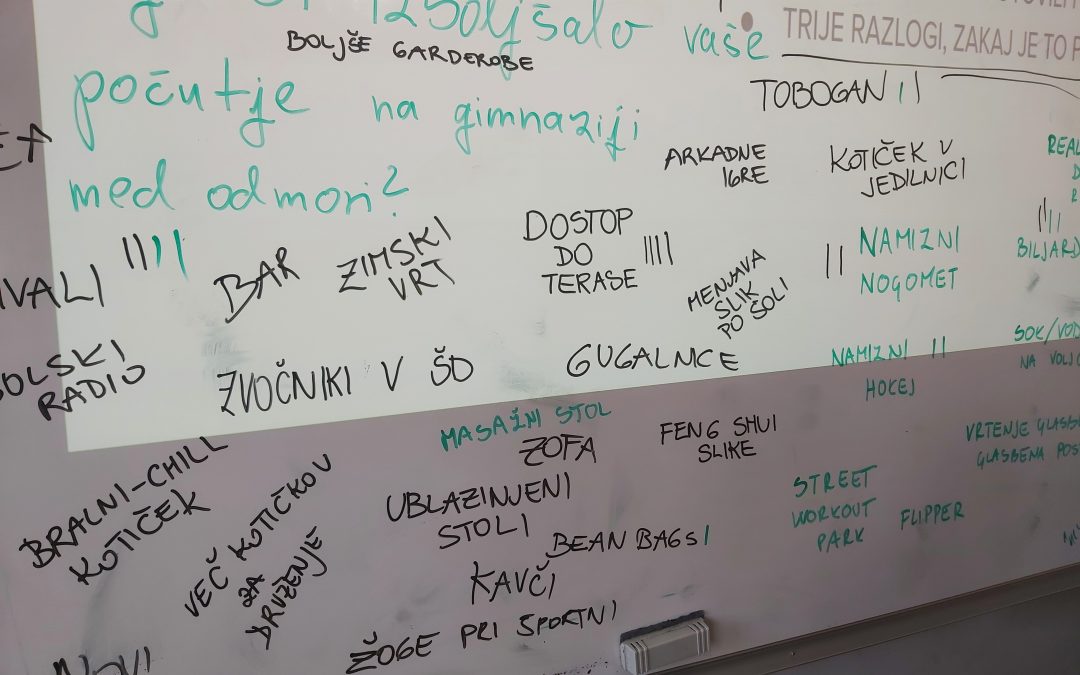 izboljšalo vaše
počutje na gimnaziji
med odmori?
TRIJE RAZLOGI, ZAKAJ JE TO
BOLJŠE GARDEROBE
TOBOGAN ||
ARKADNE
IGRE
KOTIČEK V
JEDILNICI
DOSTOP
DO
TERASE ||||
BAR
ZIMSKI
VRT
MENJAVA
SLIK
PO ŠOLI
|| NAMIZNI
NOGOMET
BILJARD
RADIO
ZVOČNIKI V ŠD
GUGALNICE
NAMIZNI ||
HOKEJ
SOK/VOD
NA VOLJO
MASAŽNI STOL
ZOFA
FENG SHUI
SLIKE
VRTENJE GLASB
GLASBENA POS
BRALNI-CHILL
KOTIČEK
VEČ KOTIČKOV
ZA
DRUŽENJE
UBLAZINJENI
STOLI
BEAN BAGS |
STREET
WORKOUT
PARK
FLIPPER
KAVČI
ŽOGE PRI ŠPORTNI